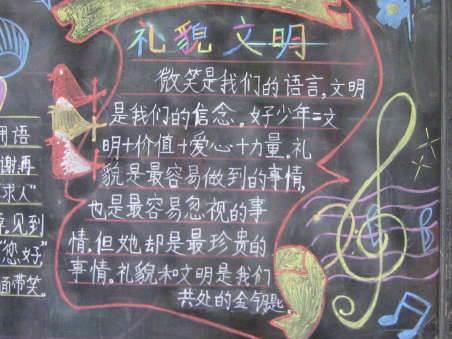 礼貌 文明
微笑是我们的语言,文明
是我们的信念。好少年=文
明+价值+爱心+力量。礼
貌是最容易做到的事情,
也是最容易忽视的事
情,但她却是最珍贵的
事情。礼貌和文明是我们
共处的金钥匙。
用语
谢,再
求人"
见到
"您好"
面带笑。